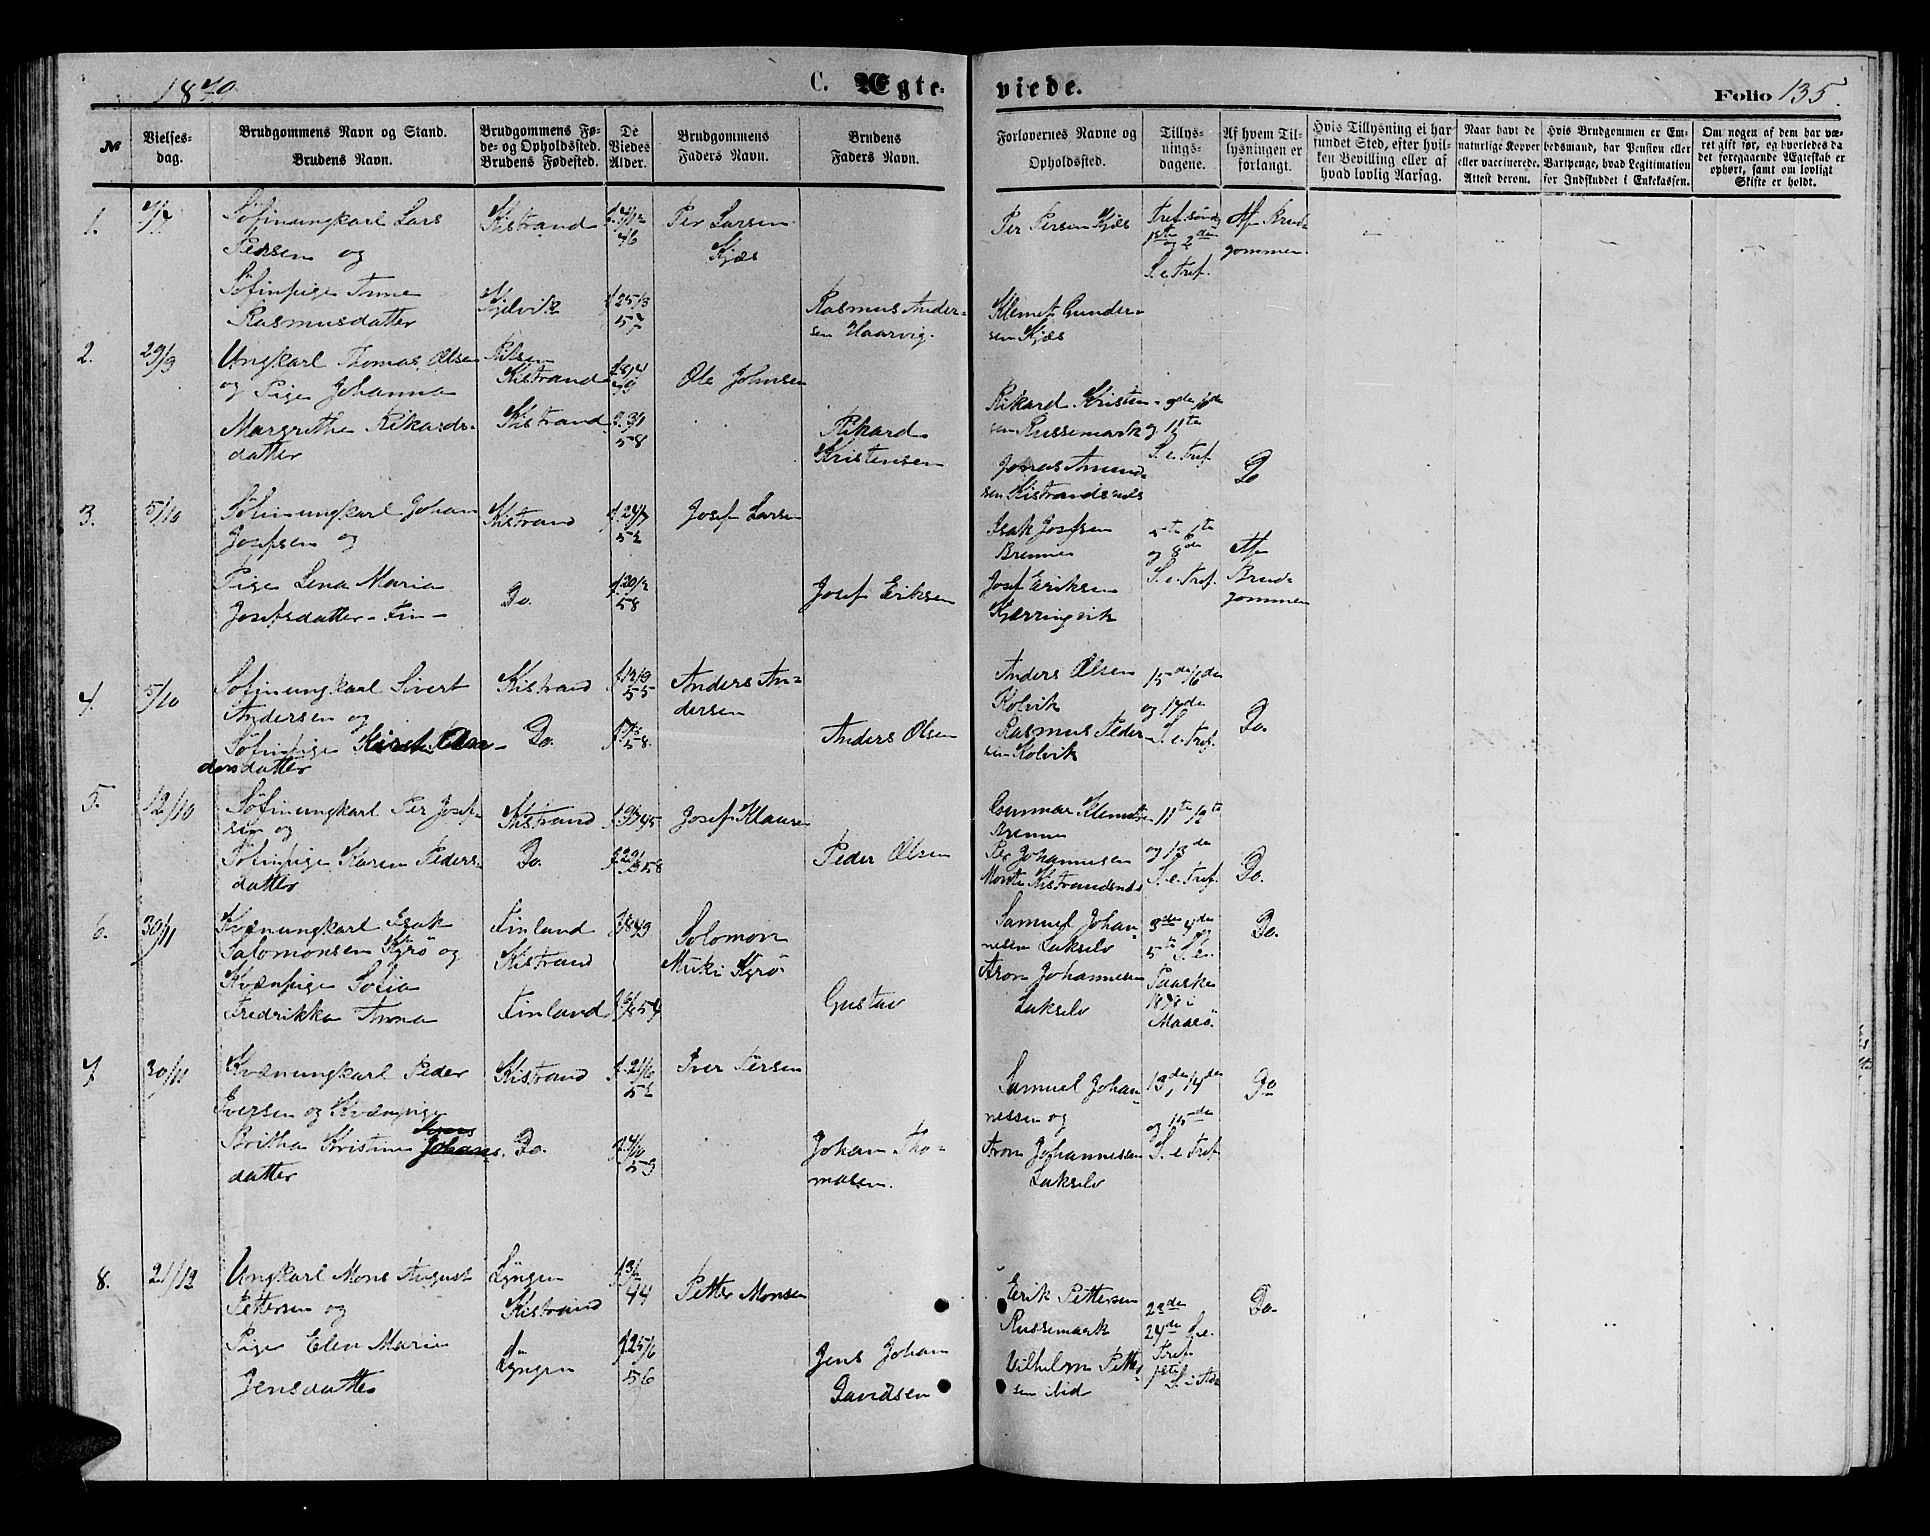 C. Ægte-
viede.
Folio 135.
№
Vielses-
dag.
Brudgommens Navn og Stand.
Brudens Navn.
Brudgommens Fø-
de- og Opholdssted.
Brudens Fødested.
De
Viedes
Alder.
Brudgommens
Faders Navn.
Brudens
Faders Navn.
Forlovernes Navne og
Opholdssted.
Tillys-
nings-
dagene.
Af hvem Til-
lysningen er
forlangt.
Hvis Tillysning ei har
fundet Sted, efter hvil-
ken Bevilling eller af
hvad lovlig Aarsag.
Naar havt de
naturlige Kopper
eller vaccinerede.
Attest derom.
Hvis Brudgommen er Em-
bedsmand, har Pension eller
Vartpenge, hvad Legitimation
for Indskuddet i Enkekassen.
Om nogen af dem har væ-
ret gift før, og hvorledes da
det foregaaende Ægteskab er
ophørt, samt om lovligt
Skifte er holdt.
1.
Søfinungkarl Lars
Persen og
Søfinpige Anne
Rasmusdatter
Kistrand
Kjelvik
f. 25/3
57
Per Larsen
Kjæs
Rasmus Ander-
sen Haarvig.
Per Persen Kjæs
Klemet Gunder-
sen Kjæs
S. e. Tref.
Af Brud-
gommen
2.
29/9
Ungkarl Thomas Olsen
og Pige Johanna
Margrethe Rikards-
datter
Kistrand
Kistrand
58
Ole Johnsen
Rikard
Kristensen
Rikard Kristen-
sen Russemark
Jonas Amund-
sen Kistrandsnes
og 11te
S. e. Tref.
Do
3.
5/10
Søfinungkarl Johan
Josefsen og
Pige Lena Maria
Josefsdatter - Fin -
Kistrand
Do.
52
58
Josef Larsen
Josef Eriksen
Isak Josefsen
Brenna
Josef Eriksen
Kjærringvik
og 8de
S. e. Tref.
Af
Brud-
gommen
4.
5/10
Søfinungkarl Sivert
Andersen og
Søfinpige
dersdatter
Kistrand
Do.
f. 12/9
55
58.
Anders An-
dersen
Anders Olsen
Anders Olsen
Kolvik
Rasmus Peder-
sen Kolvik
15de 16de
og 17de
S. e. Tref.
Do.
5.
12/10
Søfinungkarl Per Josef-
sen og
Søfinpige Karen Peders-
datter
Kistrand
Do.
Josef Klausen
Peder Olsen
Gunnar Klemetsen
Brenna
Per Johannesen
Kistrandsnes
11te 12te
og 13de
S. e. Tref.
Do.
6.
30/11
Kvænungkarl Isak
Salomonsen Kyrö og
Kvænpige Sofia
Fredrikka Anna
Finland
Kistrand
Finland
Solomon
Muki Kyrö
Gustav
Samuel Johan-
nesen Lakselv
Aron Johannesen
Lakselv
3de 4de
5te S. e.
Paaske
i
Maasø.
Do.
7
30/11
Kvænungkarl Peder
Iversen og Kvænpige
Britha Kristine Johans-
datter
Kistrand
Do.
f. 21/6
52
59
Iver Persen
Johan Tho-
masen.
Samuel Johan-
nessen og
Aron Johannesen
Lakselv
13de, 14de
og 15de
S. e. Tref.
Do
8.
21/12
Ungkarl Mons August
Pettersen og
Pige Elen Marie
Jensdatter
Lyngen
Kistrand
Lyngen
44
f. 25/6
56
Petter Monsen
Jens Johan
Davidsen
Erik Pettersen
Russemark
Vilhelm Petter-
sen ibid
23de
24de S. e.
Tref.
Do.